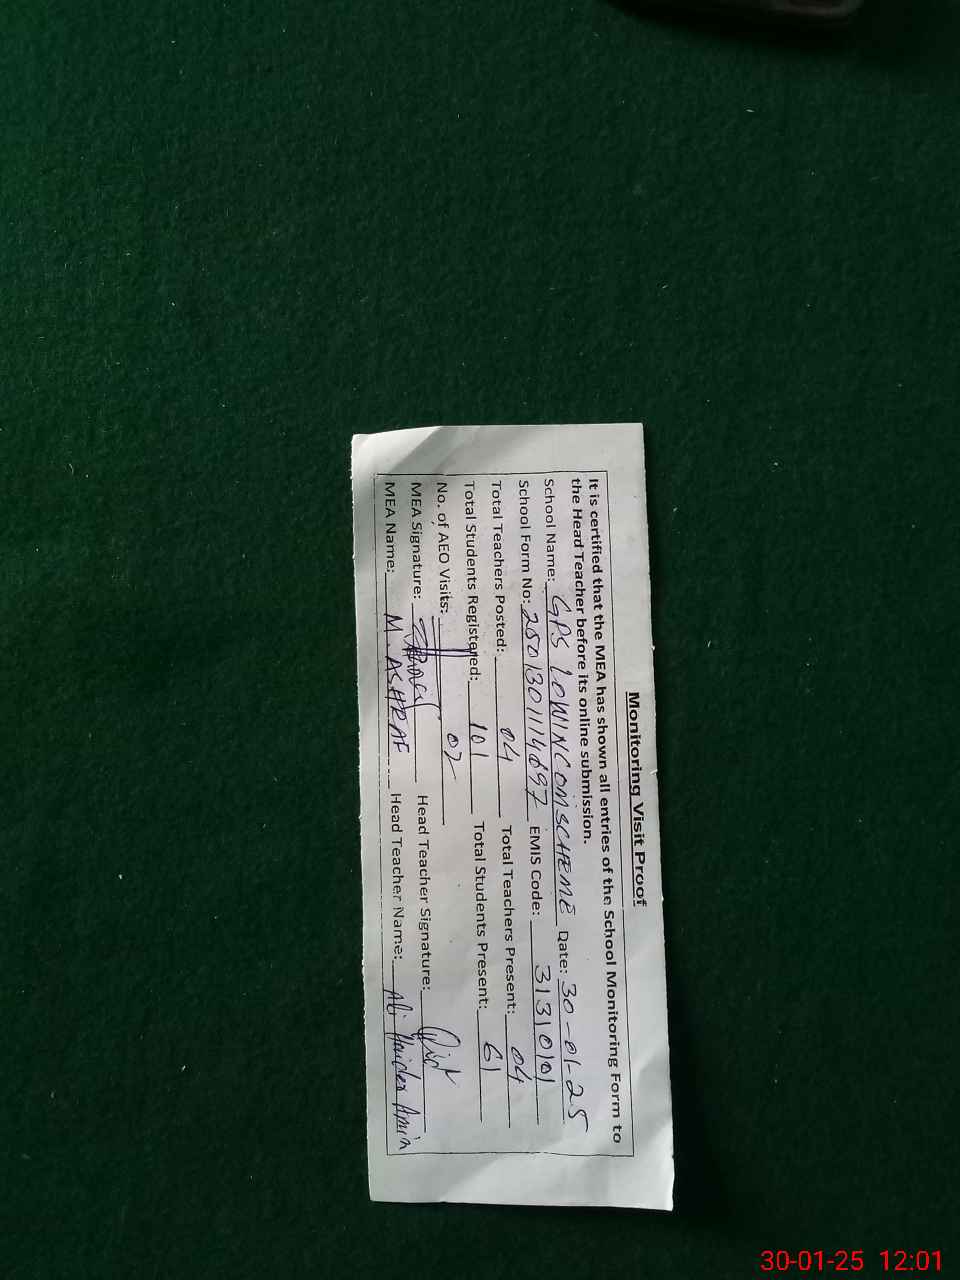 Monitoring Visit Proof
It is certified that the MEA has shown all entries of the School Monitoring Form to
the Head Teacher before its online submission.
School Name: GPS LOWINCOMSCHEME Date: 30-01-25
School Form No: EMIS Code: 31310101
Total Teachers Posted: 04 Total Teachers Present: 04
Total Students Registered: 101 Total Students Present: 61
No. of AEO Visits: 02
MEA Signature: Head Teacher Signature:
MEA Name: M. ASHRAF Head Teacher Name: Ali Haider Amin
30-01-25 12:01